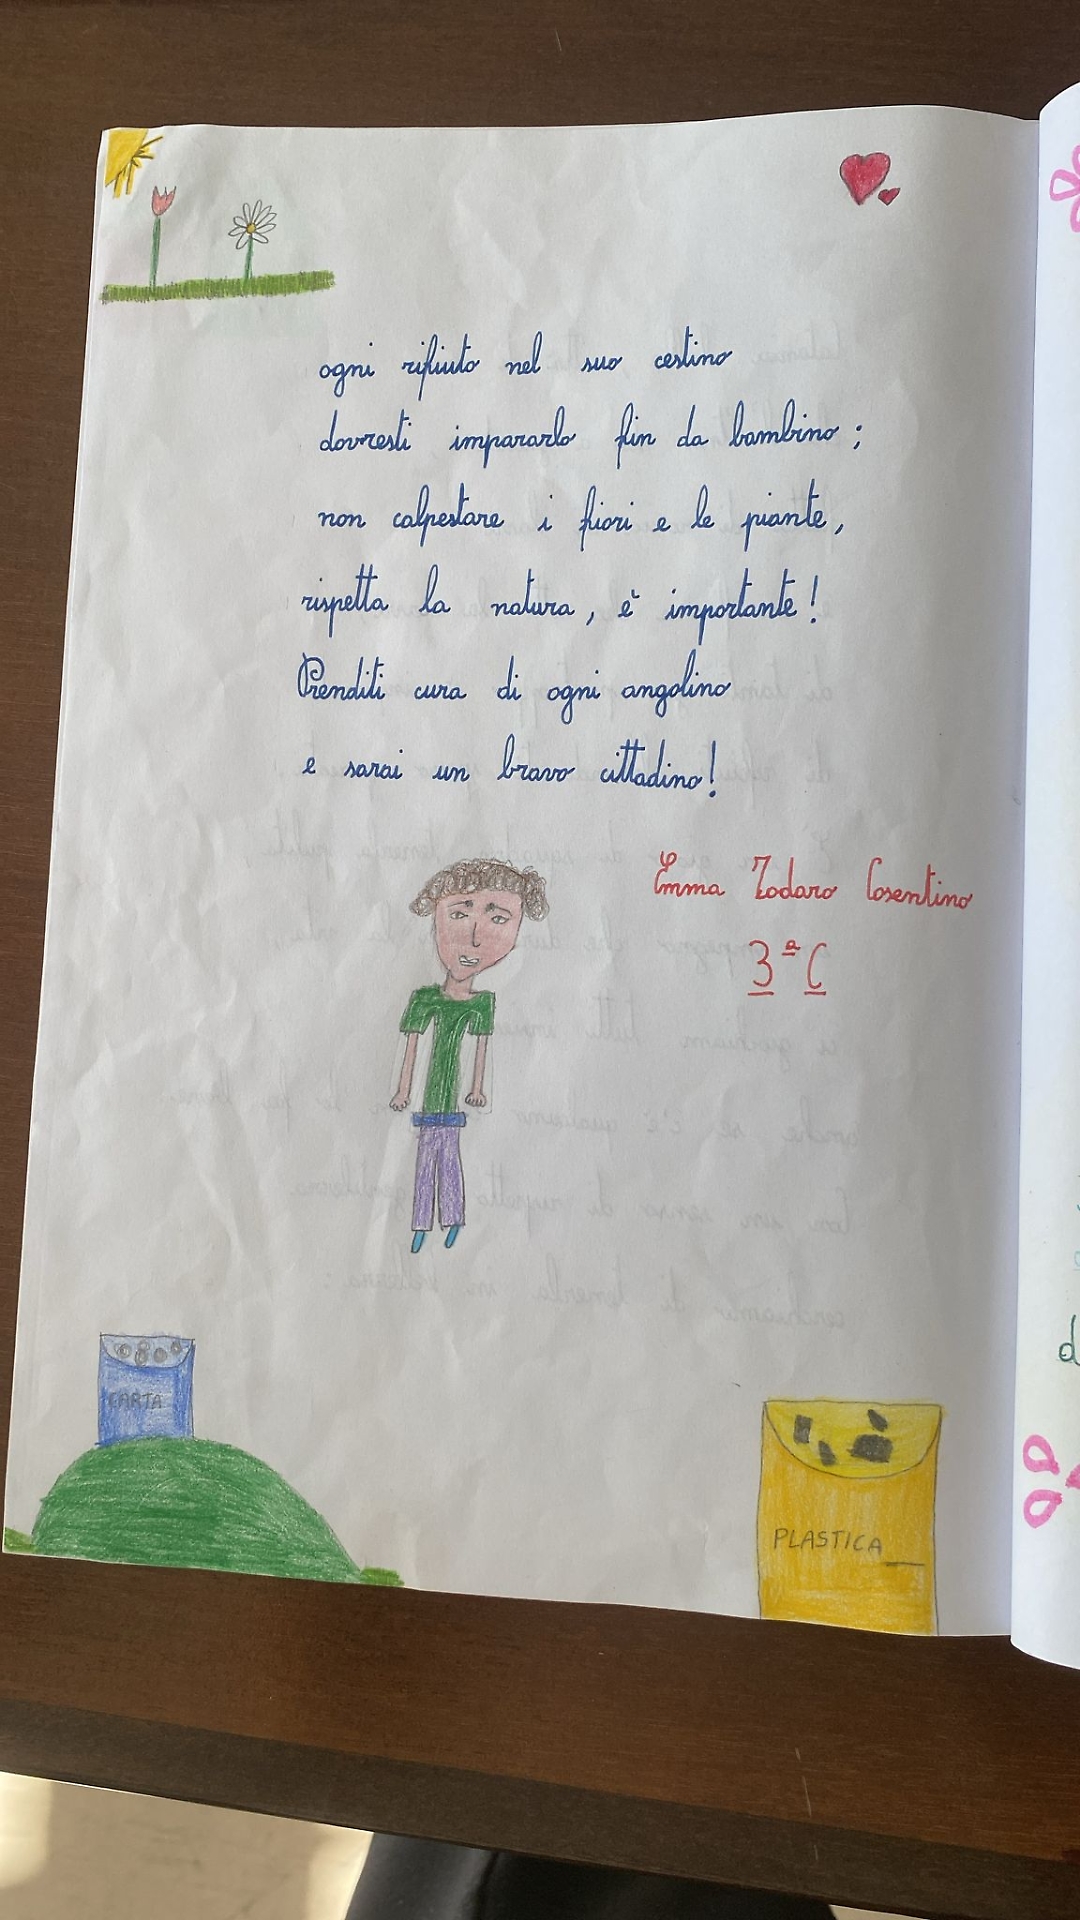 ogni rifiuto nel suo cestino
dovresti impararlo fin da bambino ;
non calpestare i fiori e le piante,
rispetta la natura, è importante!
Prenditi cura di ogni angolino
e sarai un bravo cittadino!
Emma Zodaro Cosentino
3ª C
CARTA
PLASTICA
d